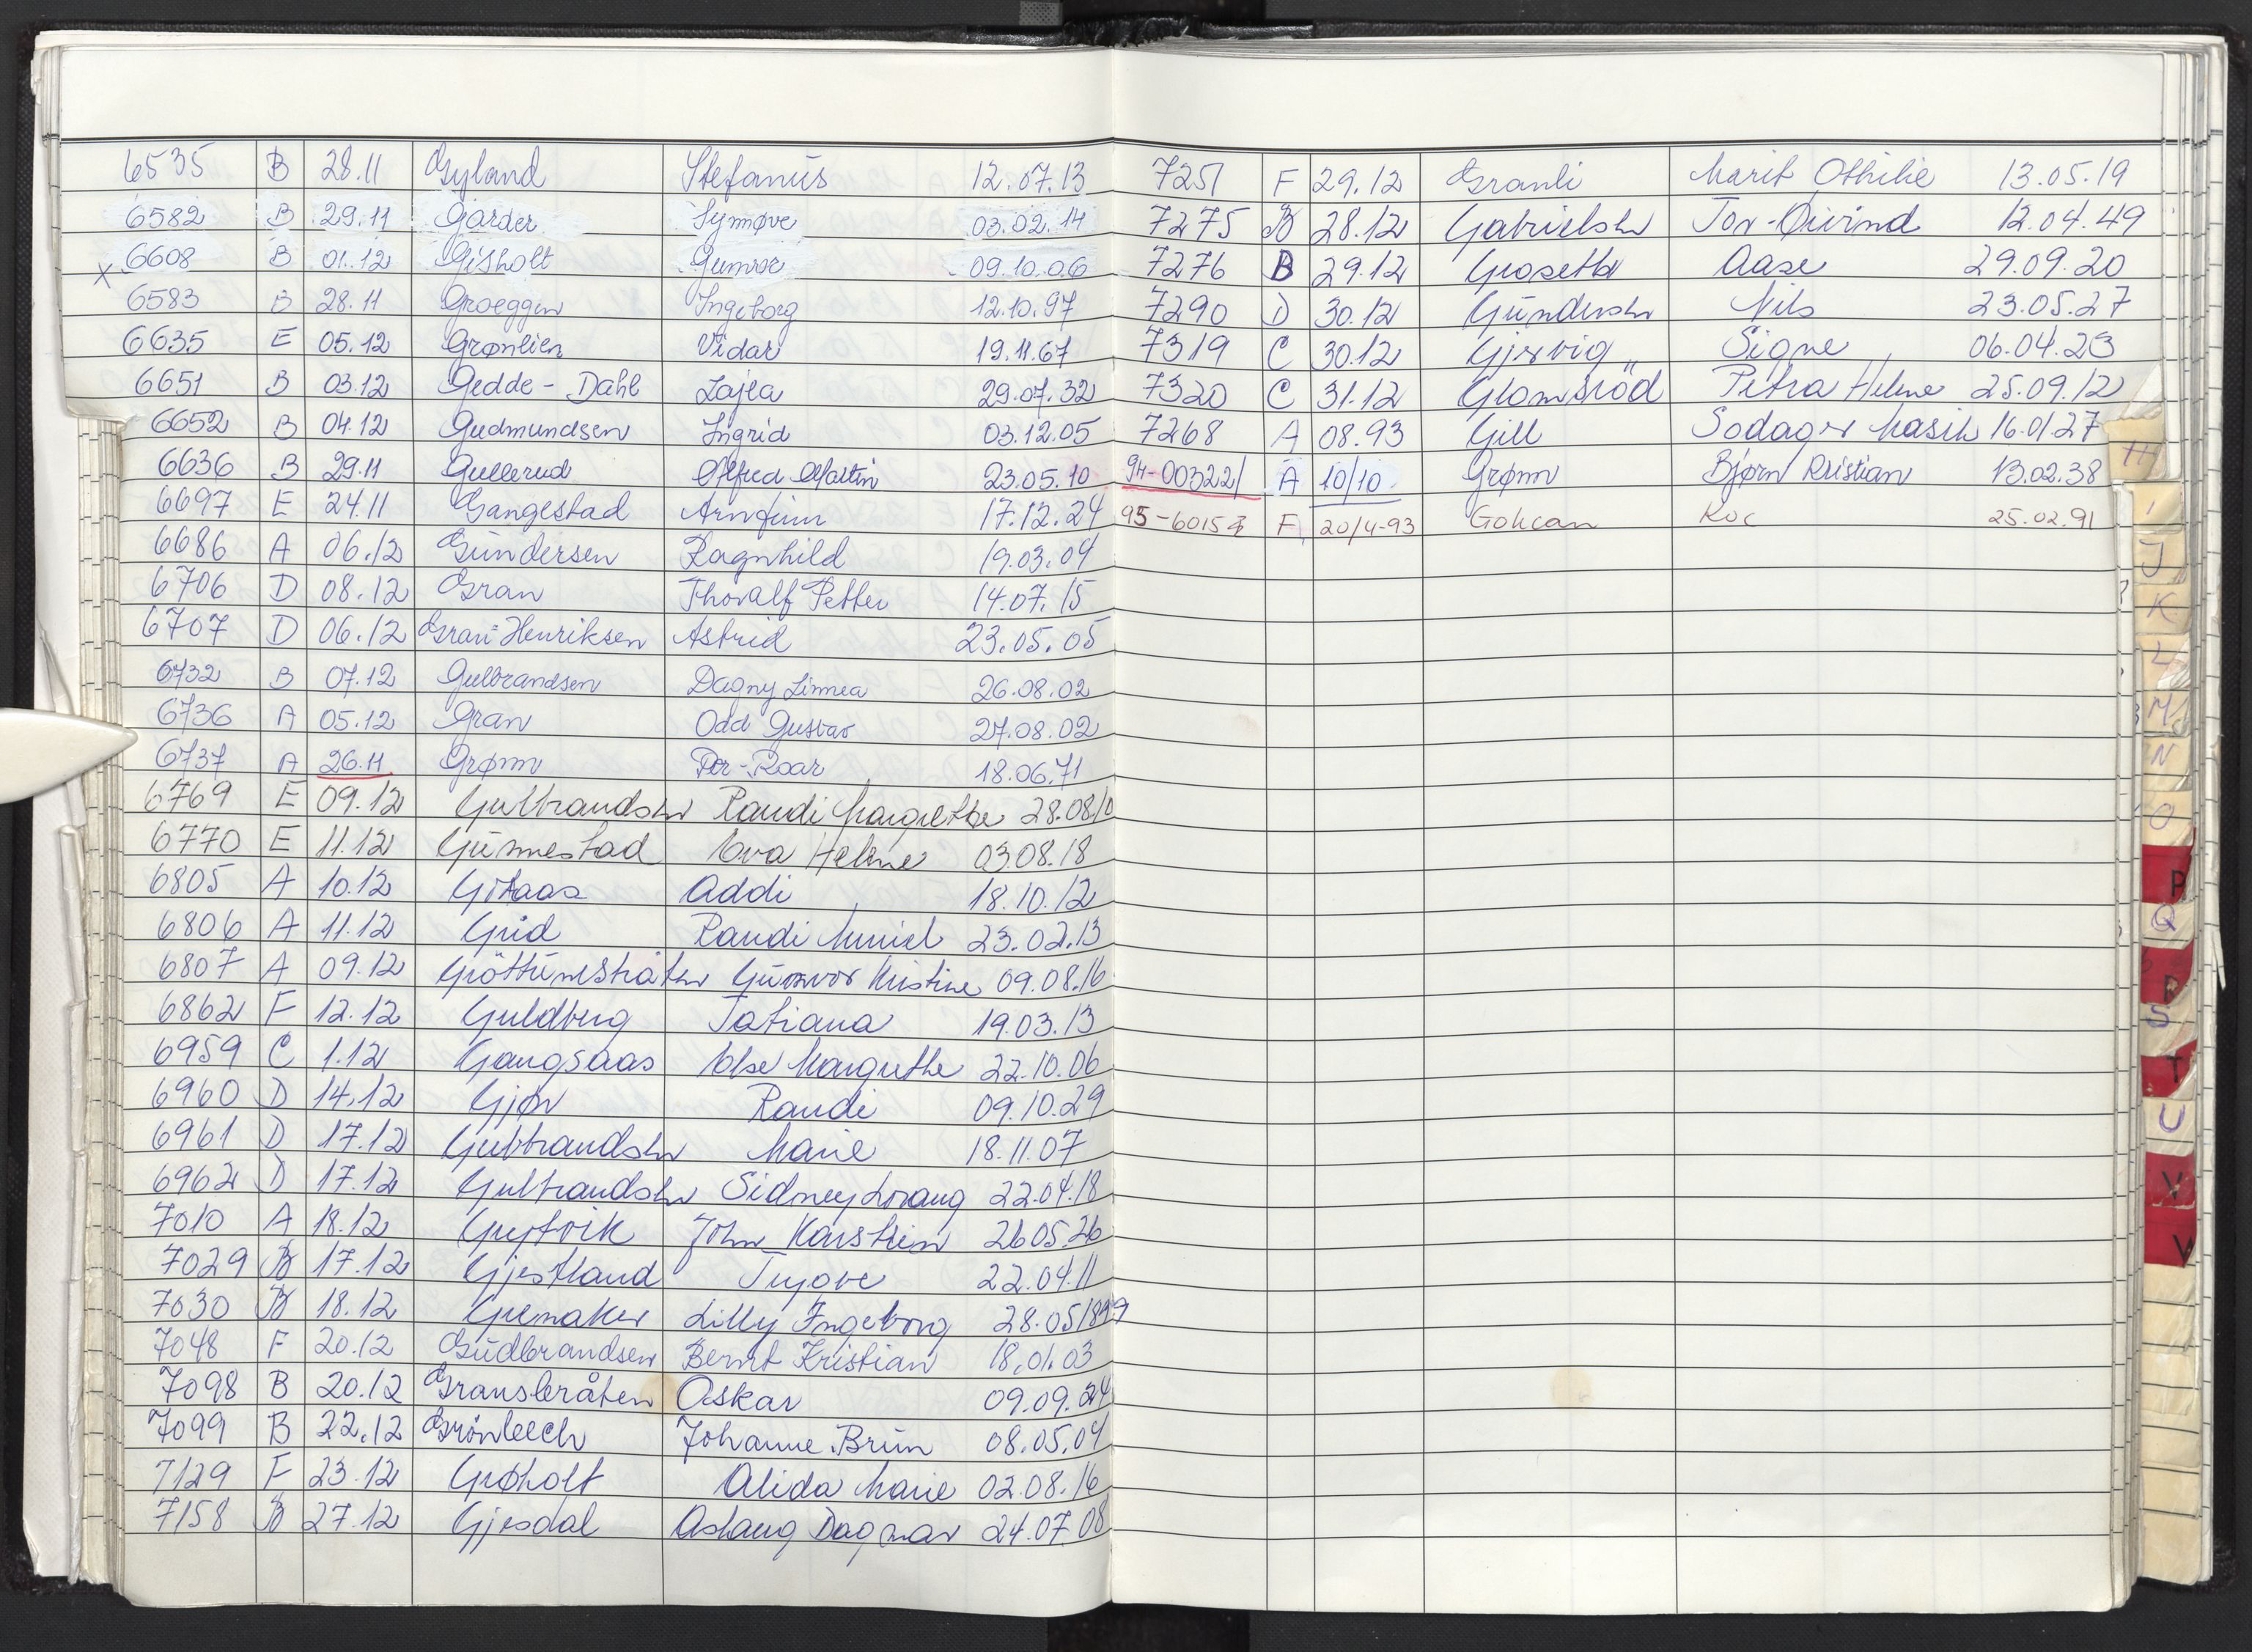 6535 B 28.11 Gyland Stefanus 12.07.13
6582 B 29.11 Garder Synnøve 03.02.14
6608 B 01.12 Gisholt Gunvor 09.10.06
x
6583 B 28.11 Groeggen Ingeborg 12.10.97
6635 E 05.12 Grønlien Vidar 19.11.67
6651 B 03.12 Gedde-Dahl Lajla 29.07.32
6652 B 04.12 Gudmundsen Ingrid 03.12.05
6636 B 29.11 Gullerud Alfred Martin 23.05.10
6697 E 24.11 Gangestad Arnfinn 17.12.24
6686 A 06.12 Gundersen Ragnhild 19.03.04
6706 D 08.12 Gran Thoralf Petter 14.07.15
6707 D 06.12 Gran-Henriksen Astrid 23.05.05
6732 B 07.12 Gulbrandsen Dagny Linnea 26.08.02
6736 A 05.12 Gran Odd Gustav 27.08.02
6737 A 26.11 Grønn Per-Roar 18.06.71
6769 E 09.12 Gulbrandsen Randi Margrethe 28.08.10
6770 E 11.12 Gunnestad Eva Helene 03.08.18
6805 A 10.12 Gitaas Addi 18.10.12
6806 A 11.12 Grid Randi 23.02.13
6807 A 09.12 Gunvor Kristine 09.08.16
6862 F 12.12 Guldberg Tatiana 19.03.13
6959 C 1.12 Gangsaas Else Margrethe 22.10.06
6960 D 14.12 Gjør Randi 09.10.29
6961 D 17.12 Gulbrandsen Marie 18.11.07
6962 D 17.12 Gulbrandsen Sidney Lorang 22.04.18
7010 A 18.12 John Karstein 26.05.26
7029 B 17.12 Gjestland Trygve 22.04.11
7030 B 18.12 Grenaker Lilly Ingeborg 28.05.1899
7048 F 20.12 Gudbrandsen Bernt Kristian 18.01.03
7098 B 20.12 Gransbråten Oskar 09.09.24
7099 B 22.12 Grønbech Johanne Brun 08.05.04
7129 F 23.12 Grøholt Alida Marie 02.08.16
7158 B 27.12 Gjesdal Aslaug Dagmar 24.07.08
7251 F 29.12 Granli Marit Othilie 13.05.19
7275 B 28.12 Gabrielsen Tor-Øivind 12.04.49
7276 B 29.12 Groseth Aase 29.09.20
7290 D 30.12 Gundersen Nils 23.05.27
7319 C 30.12 Gjervig Signe 06.04.23
7320 C 31.12 Glomsröd Petra Helene 25.09.12
7268 A 08.93 Gill Sodager Masih 16.01.27
94-003221 A 10/10 Grønn Bjørn Kristian 13.02.38
F 20/4-93 Gohcan Koc 25.02.91
H
I
J
K
L
M
N
O
P
Q
R
S
T
U
V